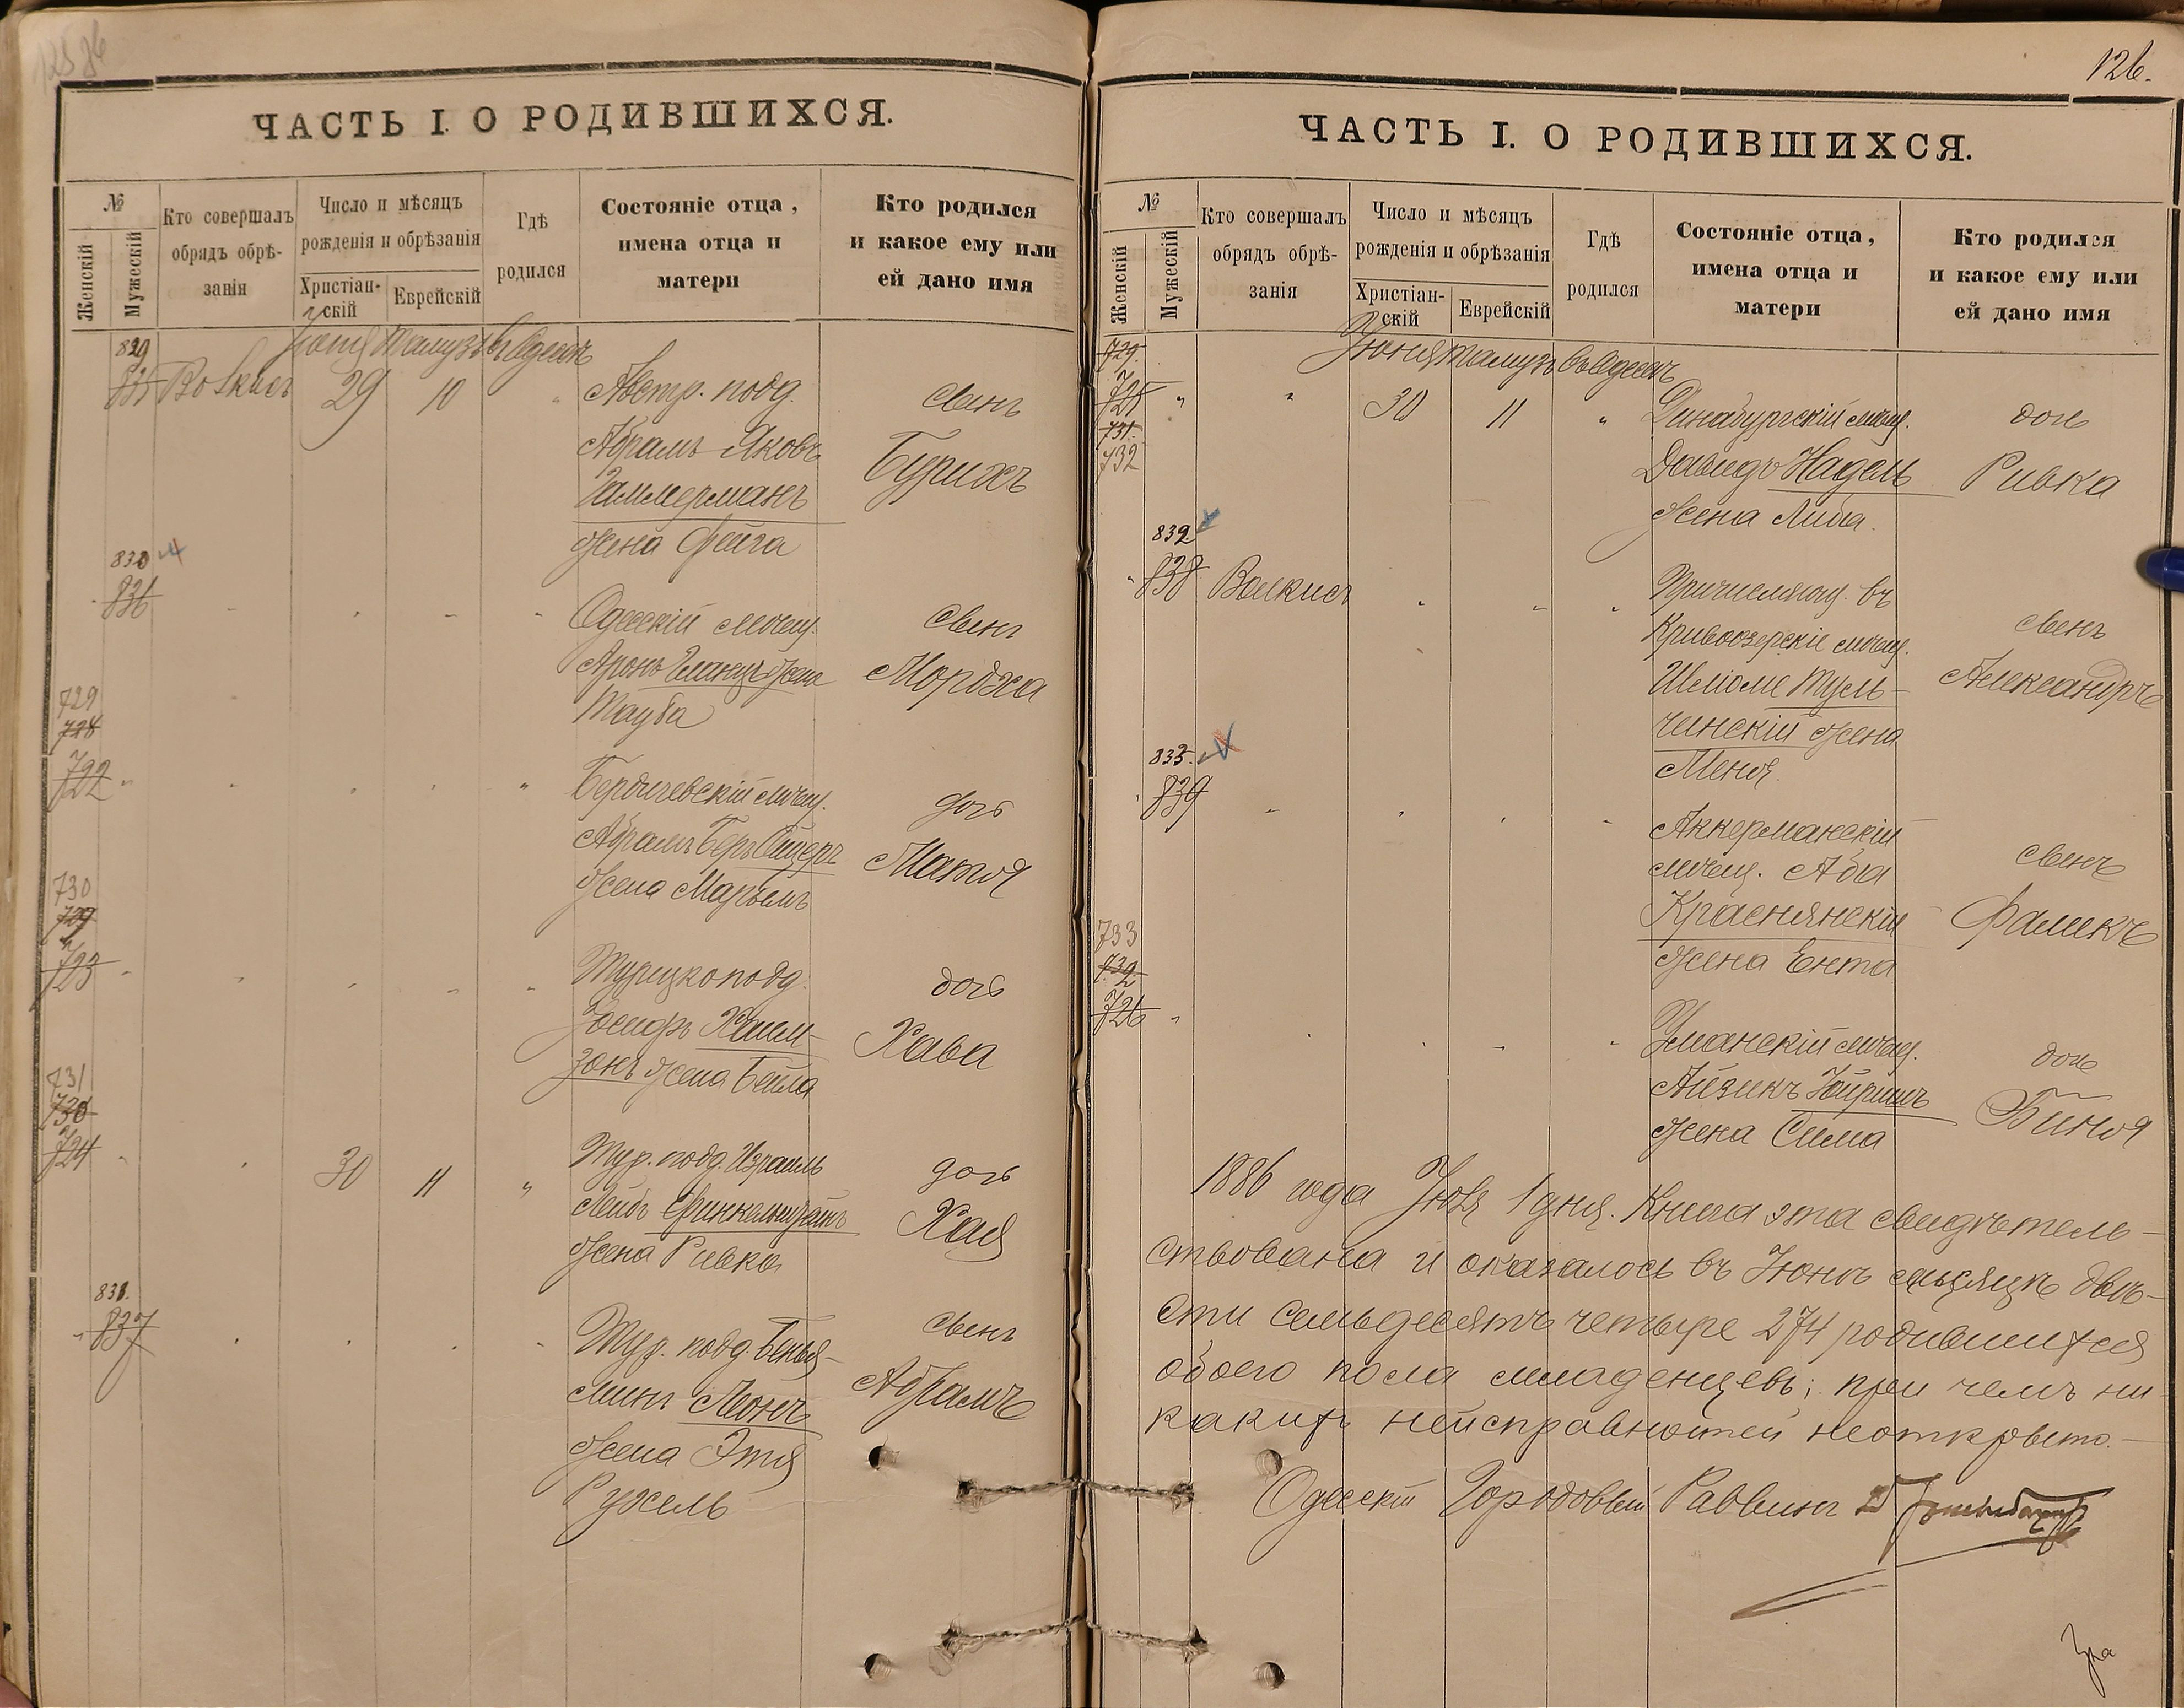 ЧАСТЬ I. О РОДИВШИХСЯ.
№
Женскій
Мужескій
Кто совершалъ
обрядъ обрѣ-
занія
Число и мѣсяцъ
рожденія и обрѣзанія
Христіан-
скій
Еврейскій
Гдѣ
родился
Состояніе отца,
имена отца и
матери
Кто родился
и какое ему или
ей дано имя
Іюня Тамузъ въ Одессѣ
829
835 Волкисъ 29 10 " Австр. подд. сынъ
Абрамъ Яковъ Бурихъ
Гаммерманъ
жена Фейга
830
836 Одесскій мѣщ. сынъ
Аронъ жена Мордха
Тауба
729
728
722 " Бердичевскій мѣщ. дочь
Абрамъ Беръ Матя
жена Марьемъ
730
729
723 Турецкоподд. дочь
Іосифъ Хаим- Хава
зонъ жена Бейла
731
730
724 30 11 " Тур. подд. Израиль дочь
Лейбъ Финкельштейнъ Хая
жена Ривка
831.
837 Тур. подд. Бенья- сынъ
минъ Леонъ Абрамъ
жена Этя
Рухель
126.
ЧАСТЬ I. О РОДИВШИХСЯ.
№
Женскій
Мужескій
Кто совершалъ
обрядъ обрѣ-
занія
Число и мѣсяцъ
рожденія и обрѣзанія
Христіан-
скій
Еврейскій
Гдѣ
родился
Состояніе отца,
имена отца и
матери
Кто родился
и какое ему или
ей дано имя
Іюня Тамузъ въ Одессѣ
729.
725 " " 30 11 " Динабургскій мѣщ. дочь
731.
732 Давидъ Надель Ривка
жена Либа.
832
838 Волкисъ Причисляющ. въ
Кривоозерскіе мѣщ. сынъ
Шліоме Туль- Александръ
чинскій жена
Меня.
833.
839 Аккерманскій
мѣщ. Аба сынъ
Краснянскій Фаликъ
жена Ента
733
732.
726 " Уманскій мѣщ. дочь
Айзикъ Биня
жена Сима
1886 года Іюля 1 дня. Книга эта свидѣтель-
ствована и оказалось въ Іюнѣ мѣсяцѣ двѣ-
сти семьдесятъ четыре 274 родившихся
обоего пола младенцевъ; при чемъ ни-
какихъ неисправностей неоткрыто.
Одесскій Городовый Раввинъ